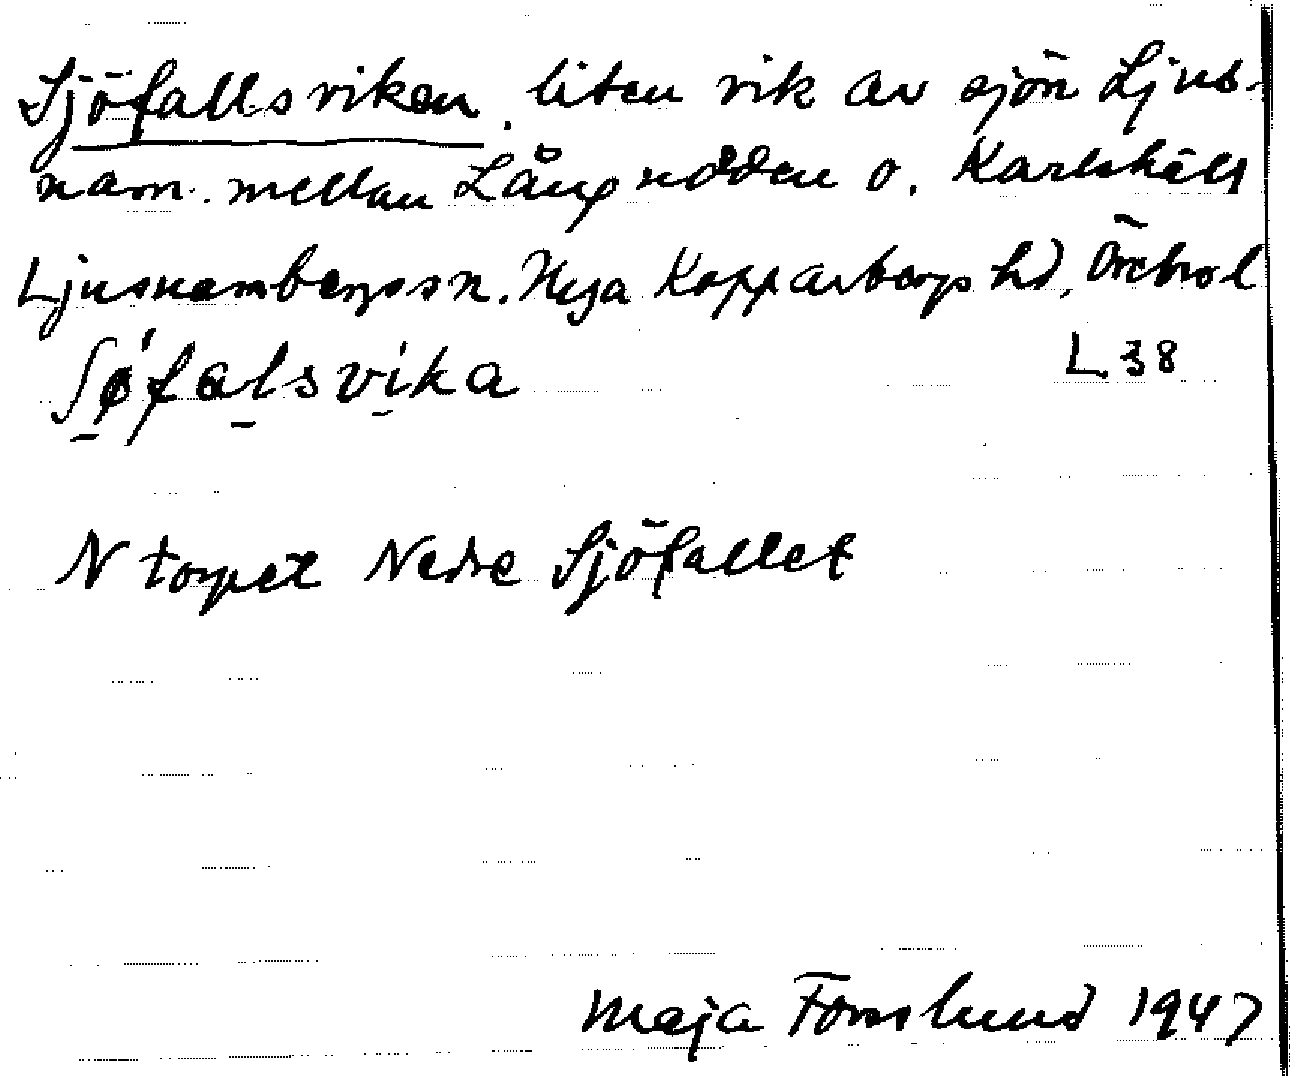 Sjöfallsviken, liten vik av sjön Ljus-
narn. mellan Långudden o. Karlshäll
Ljusnarsbergs sn. Nya Kopparbergs hd, Örebro l
ʃøfalsvika L 38
N torpet Nedre Sjöfallet
Maja Forslund 1947